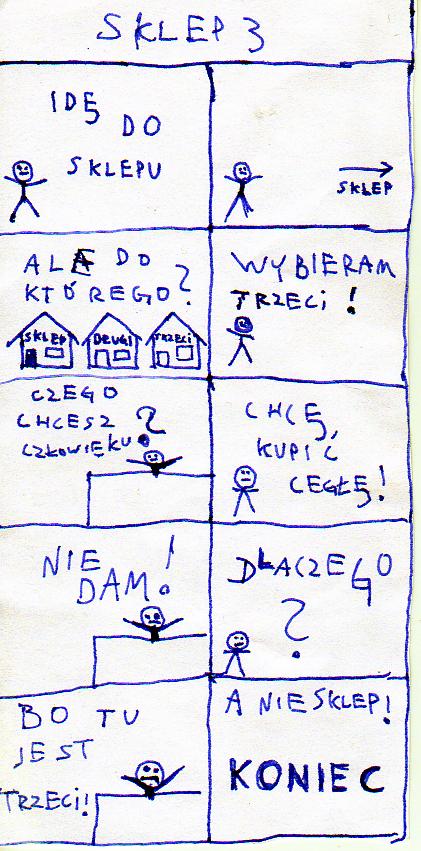 SKLEP 3
IDĘ
DO
SKLEPU
SKLEP
ALE DO
KTÓREGO?
SKLEP DRUGI TRZECI
WYBIERAM
TRZECI!
CZEGO
CHCESZ
CZŁOWIEKU?
CHCĘ,
KUPIĆ
CEGŁĘ!
NIE
DAM!
DLACZEGO
?
BO TU
JEST
TRZECI!
A NIE SKLEP!
KONIEC